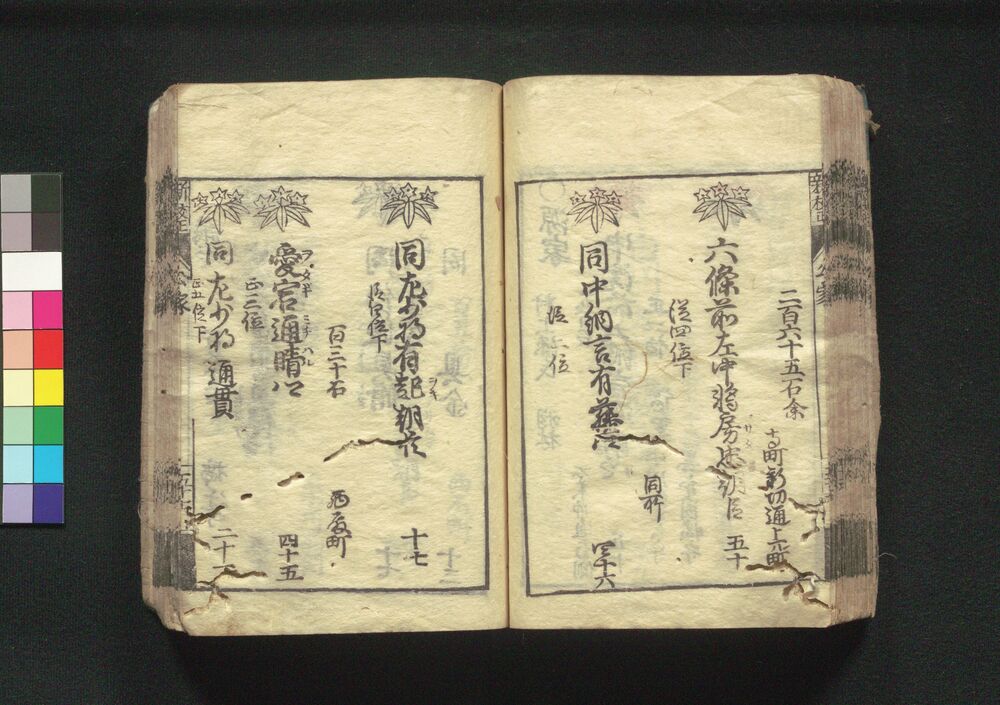 二百六十五石余
寺町新切通上ル町
六條前左中将房忠朝臣
五十
従四位下
同中納言有
同所
従二位
四十六
同左少将有起朝臣
十七
従四位下
百三十石
西殿町
愛宕通晴
四十五
正三位
同左少将通貫
正五位下
新校正
公家